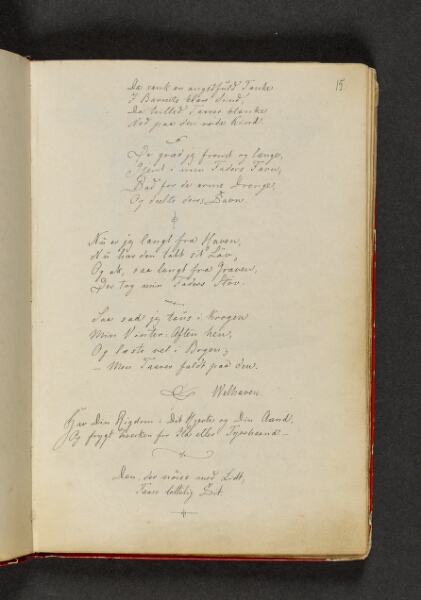 15.
Da sank en angstfuld Tanke
I Barnets klare Sind,
Da trilled Taarer blanke
Ned paa den røde Kind.
Da græd jeg fromt og længe,
Gjemt i min Faders Favn,
Bad for de arme Drenge,
Og deelte deres Savn.
Nu er jeg langt fra Haven,
Nu har den tabt sit Løv,
Og ak, saa langt fra Graven,
Der tog min Faders Støv.
Saa sad jeg taus i Krogen
Min Vinter-Aften hen,
Og læste vel i Bogen;
– Men Taarer faldt paa den.
Welhaven.
Har Din Rigdom i Dit Hjerte og Din Aand,
Og frygt hverken for Ild eller Tyvehaand –
Den, der nøies med Lidt,
Faaer letteligen Sit.